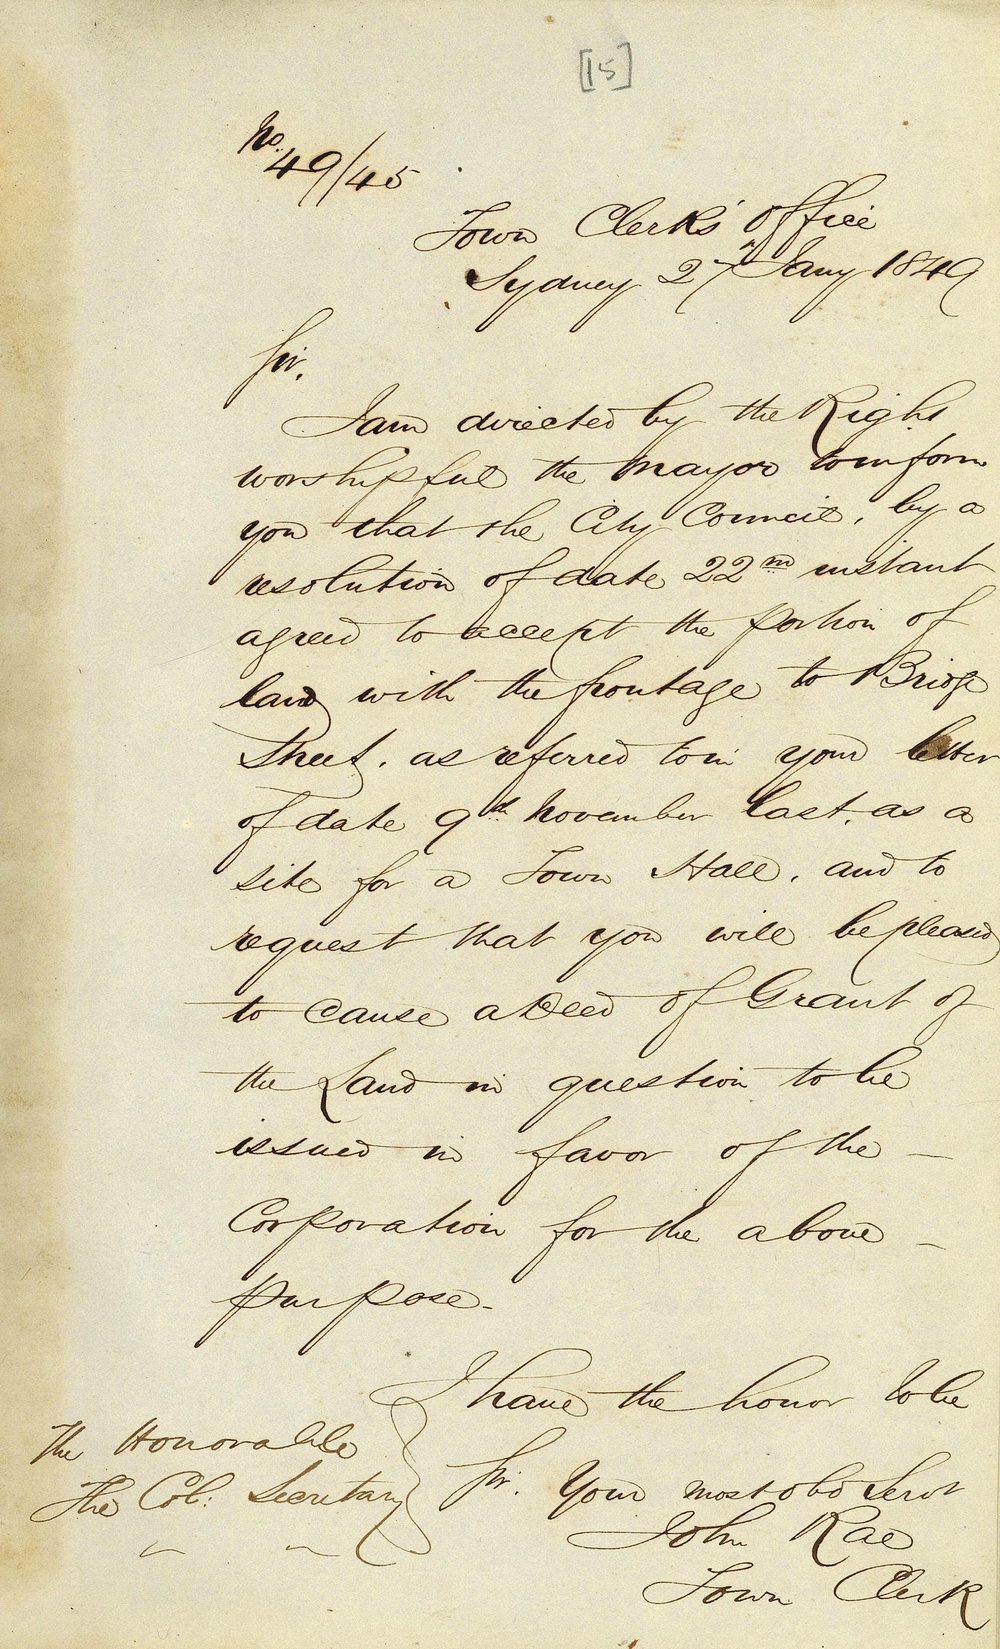 [15]
No. 49/45
Town Clerks' Office
Sydney 27th Jany 1849
Sir,
I am directed by the Right
worshipful the Mayor to inform
you that the City Council, by a
resolution of date 22nd instant
agreed to accept the portion of
land with the frontage to Bridge
Street, as referred to in your letter
of date 9th November last, as a
site for a Town Hall, and to
request that you will be pleased
to cause a Deed of Grant of
the Land in question to be
issued in favor of the –
Corporation for the above –
purpose.
I have the honor to be
Sir. Your most obd Servt
John Rae
Town Clerk
The Honorable
The Col: Secretary